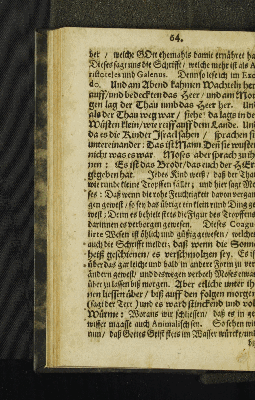 64.
der / welche GOtt ehemahls damit ernähret ha
Dieses sagt uns die Schrifft / welche mehr ist als A
ristoteles und Galenus. Denn so lese ich im Exo
do. Und am Abend kahmen Wachteln her
auff / und bedeckten das Heer / und am Mor
gen lag der Thau umb das Heer her. Und
als der Thau weg war / siehe da lags in der
Wüsten klein / wie reiff auff dem Lande. Und
da es die Kinder Jsrael sahen / sprachen si
untereinander: Das ist Mann. Denn sie wusten
nicht was es war. Moses aber sprach zu ih
nen: Es ist das Brodt / das euch der HErr
gegeben hat. Jedes Kind weiß / daß der Thau
wie runde kleine Tropffen fället; und hier sagt Mo
ses: Daß wenn die rohe Feuchtigkeit davon vergan
gen gewest / so sey das übrige ein klein rund Ding ge
west; Denn es behielt stets die Figur des Tropffens
darinnen es verborgen gewesen. Dieses Coagu
lirte Wesen ist öhlich und gifftig gewesen / welches
auch die Schrifft meldet: daß wenn die Sonn
heiß geschienen / es verschmoltzen sey. Es is
über das gar leicht und bald in andere Form zu ver
ändern gewest / und deswegen verboth Moses etwas
über zu lassen biß morgen. Aber etliche unter ih
nen liessen über / biß auff den folgen morgen
(sagt der Text) und es ward stinckend und vol
Würme: Woraus wir schliessen / daß es in ge
wisser maasse auch Animalisch sey. So sehen wir
nun / daß Gottes Geist stets im Wasser würcke / und